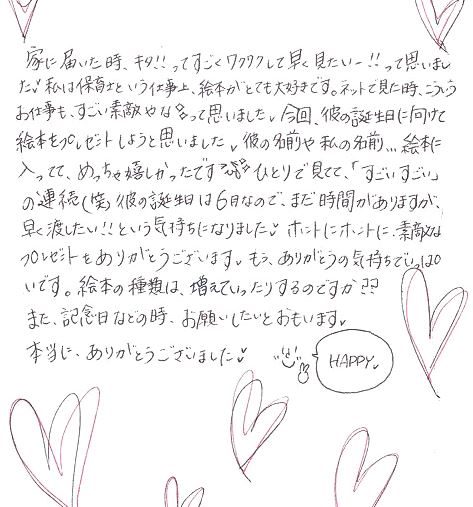 家に届いた時、キタ!!ってすごくワクワクして早く見たいー!!って思いまし
た♥私は保育士という仕事上、絵本がとても大好きです。ネットで見た時、こういう
お仕事も、すごい素敵やなぁって思いました♥今回、彼の誕生日に向けて
絵本をプレゼントしようと思いました♥彼の名前や私の名前...絵本に
入ってて、めっちゃ嬉しかったです ひとりで見てて、「すごいすごい」
の連続(笑)彼の誕生日は6月なので、まだ時間がありますが、
早く渡したい!!という気持ちになりました♥ホントにホントに、素敵な
プレゼントをありがとうございます♥もう、ありがとうの気持ちでいっぱ
いです。絵本の種類は、増えていったりするのですか??
また、記念日などの時、お願いしたいとおもいます♥
本当に、ありがとうございました♥
HAPPY♥